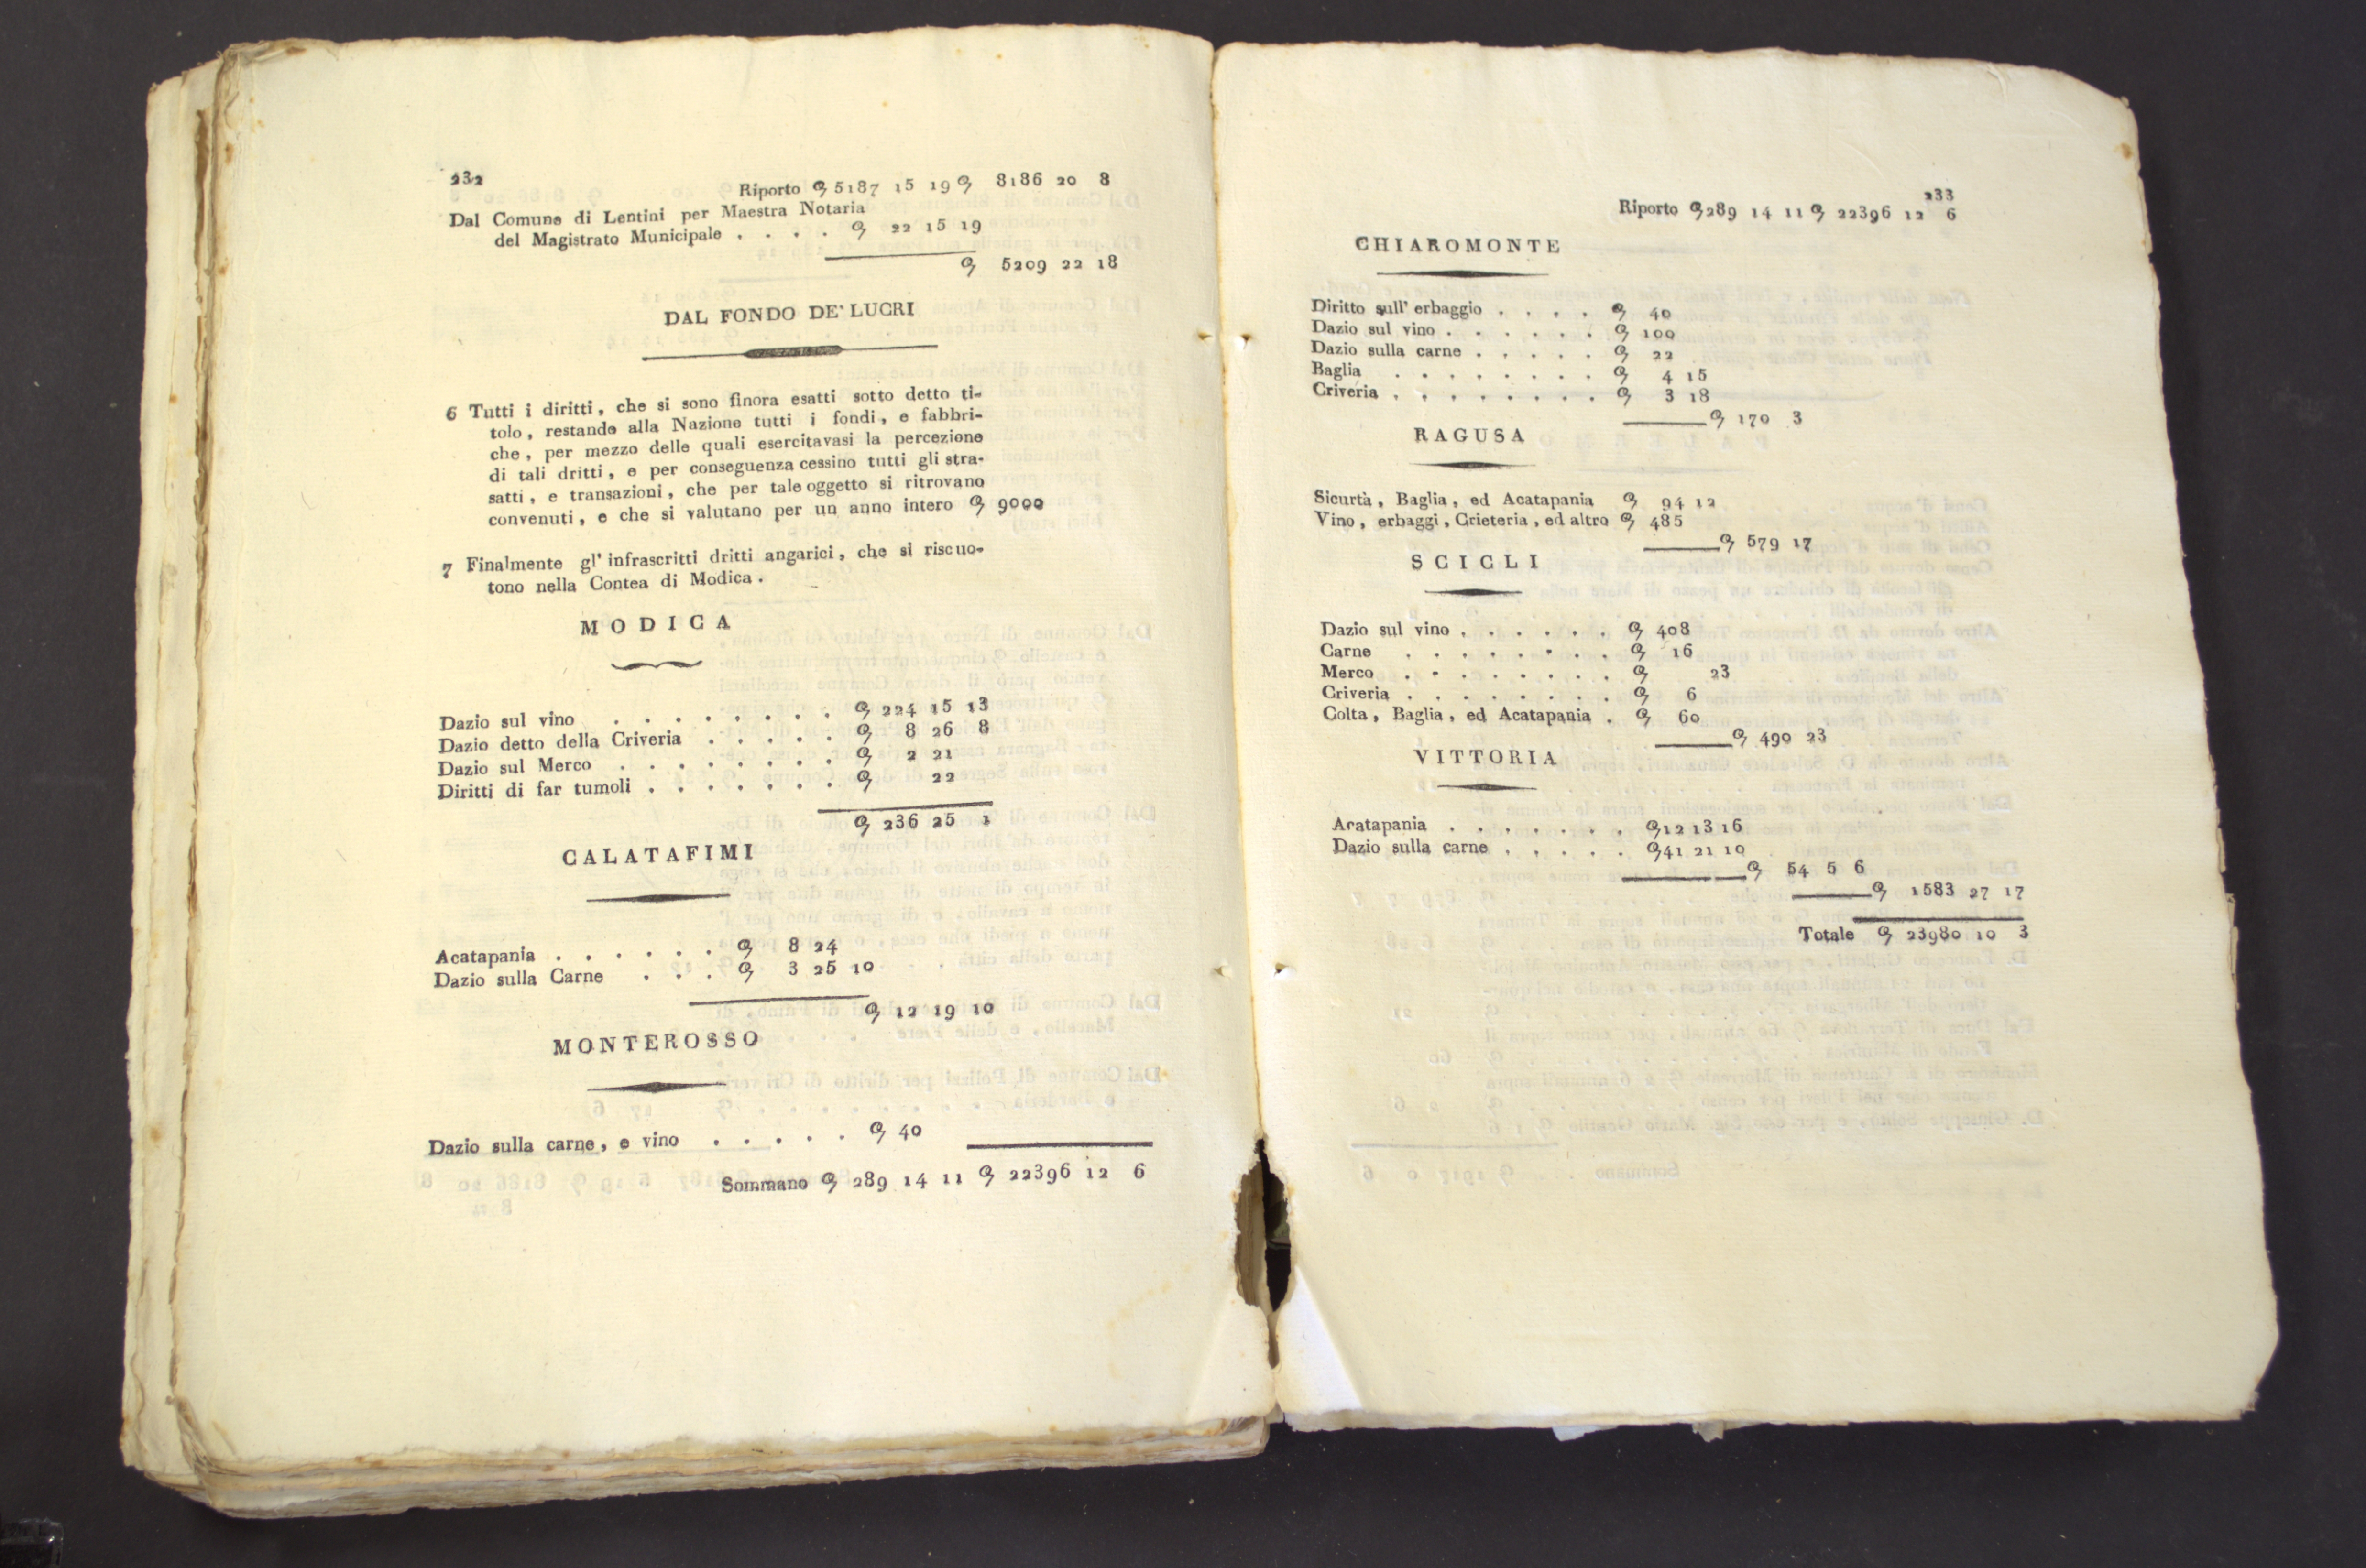 232
Riporto 5187 15 19 8186 20 8
Dal Comune di Lentini per Maestra Notaria
del Magistrato Municipale . . . . 22 15 19
5209 22 18
DAL FONDO DE' LUCRI
6 Tutti i diritti, che si sono finora esatti sotto detto ti-
tolo, restando alla Nazione tutti i fondi, e fabbri-
che, per mezzo delle quali esercitavasi la percezione
di tali dritti, e per conseguenza cessino tutti gli stra-
satti, e transazioni, che per tale oggetto si ritrovano
convenuti, e che si valutano per un anno intero 9000
7 Finalmente gl' infrascritti dritti angarici, che si riscuo-
tono nella Contea di Modica.
MODICA
Dazio sul vino . . . . . . . . 224 15 13
Dazio detto della Criveria . . . . . 8 26 8
Dazio sul Merco . . . . . . . . 2 21
Diritti di far tumoli . . . . . . . 22
236 25 1
CALATAFIMI
Acatapania . . . . . . 8 24
Dazio sulla Carne . . . 3 25 10
12 19 10
MONTEROSSO
Dazio sulla carne, e vino . . . . . 40
Sommano 289 14 11 22396 12 6
233
Riporto 289 14 11 22396 12 6
CHIAROMONTE
Diritto sull' erbaggio . . . . 40
Dazio sul vino . . . . . . 100
Dazio sulla carne . . . . . 22
Baglia . . . . . . . . 4 15
Criveria . . . . . . . . 3 18
170 3
RAGUSA
Sicurtà, Baglia, ed Acatapania 94 12
Vino, erbaggi, Crieteria, ed altro 485
579 17
SCICLI
Dazio sul vino . . . . . . 408
Carne . . . . . . . . 16
Merco . . . . . . . . 23
Criveria . . . . . . . . 6
Colta, Baglia, ed Acatapania . 60
490 23
VITTORIA
Acatapania . . . . . . . 12 13 16
Dazio sulla carne . . . . . 41 21 10
54 5 6
1583 27 17
Totale 23980 10 3